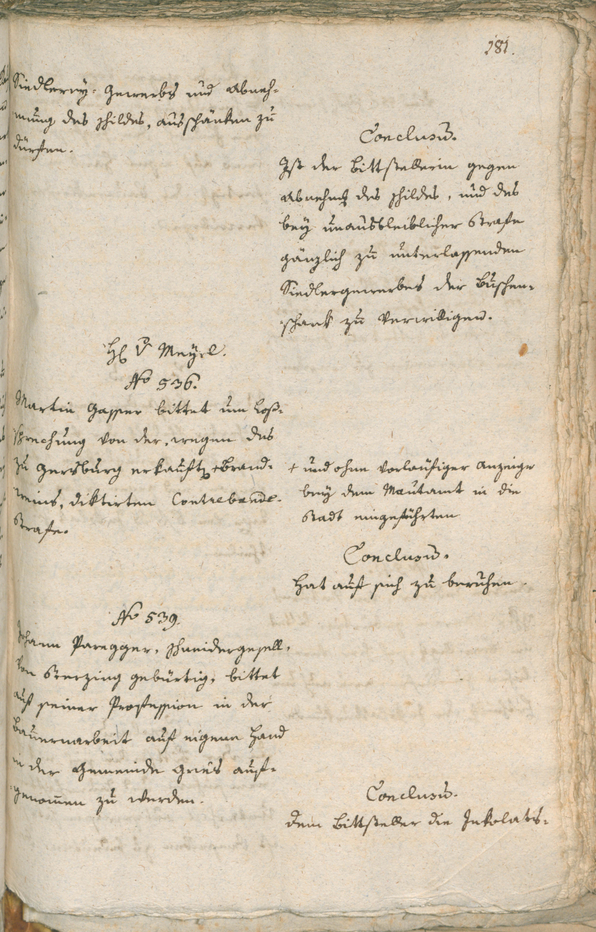 181.
Siedlerey-Gewerbs und Abneh-
mung des Schildes, ausschänken zu
dürfen.
Conclusum.
Ist der Bittstellerin gegen
Abnehmung des Schildes, und des
bey unausbleiblicher Strafe
gänzlich zu unterlassenden
Siedlergewerbes der Buschen-
schank zu verwilligen.
H: v Meyrl.
No 536.
Martin Gasser bittet um Loß-
sprechung von der, wegen des
zu erkauften + Brand-
weins, diktirten Contrebande-
Strafe.
+ und ohne vorläufiger Anzeige
bey dem Mautamt in die
Stadt eingeführten
Conclusum.
Hat auf sich zu beruhen.
No 539.
Johann Paregger, Schneidergesell,
von Sterzing gebürtig, bittet
auf seiner Profession in der
Bauernarbeit auf eigene Hand
in der Gemeinde Gries auf-
genommen zu werden.
Conclusum.
dem Bittsteller die Inkolats-